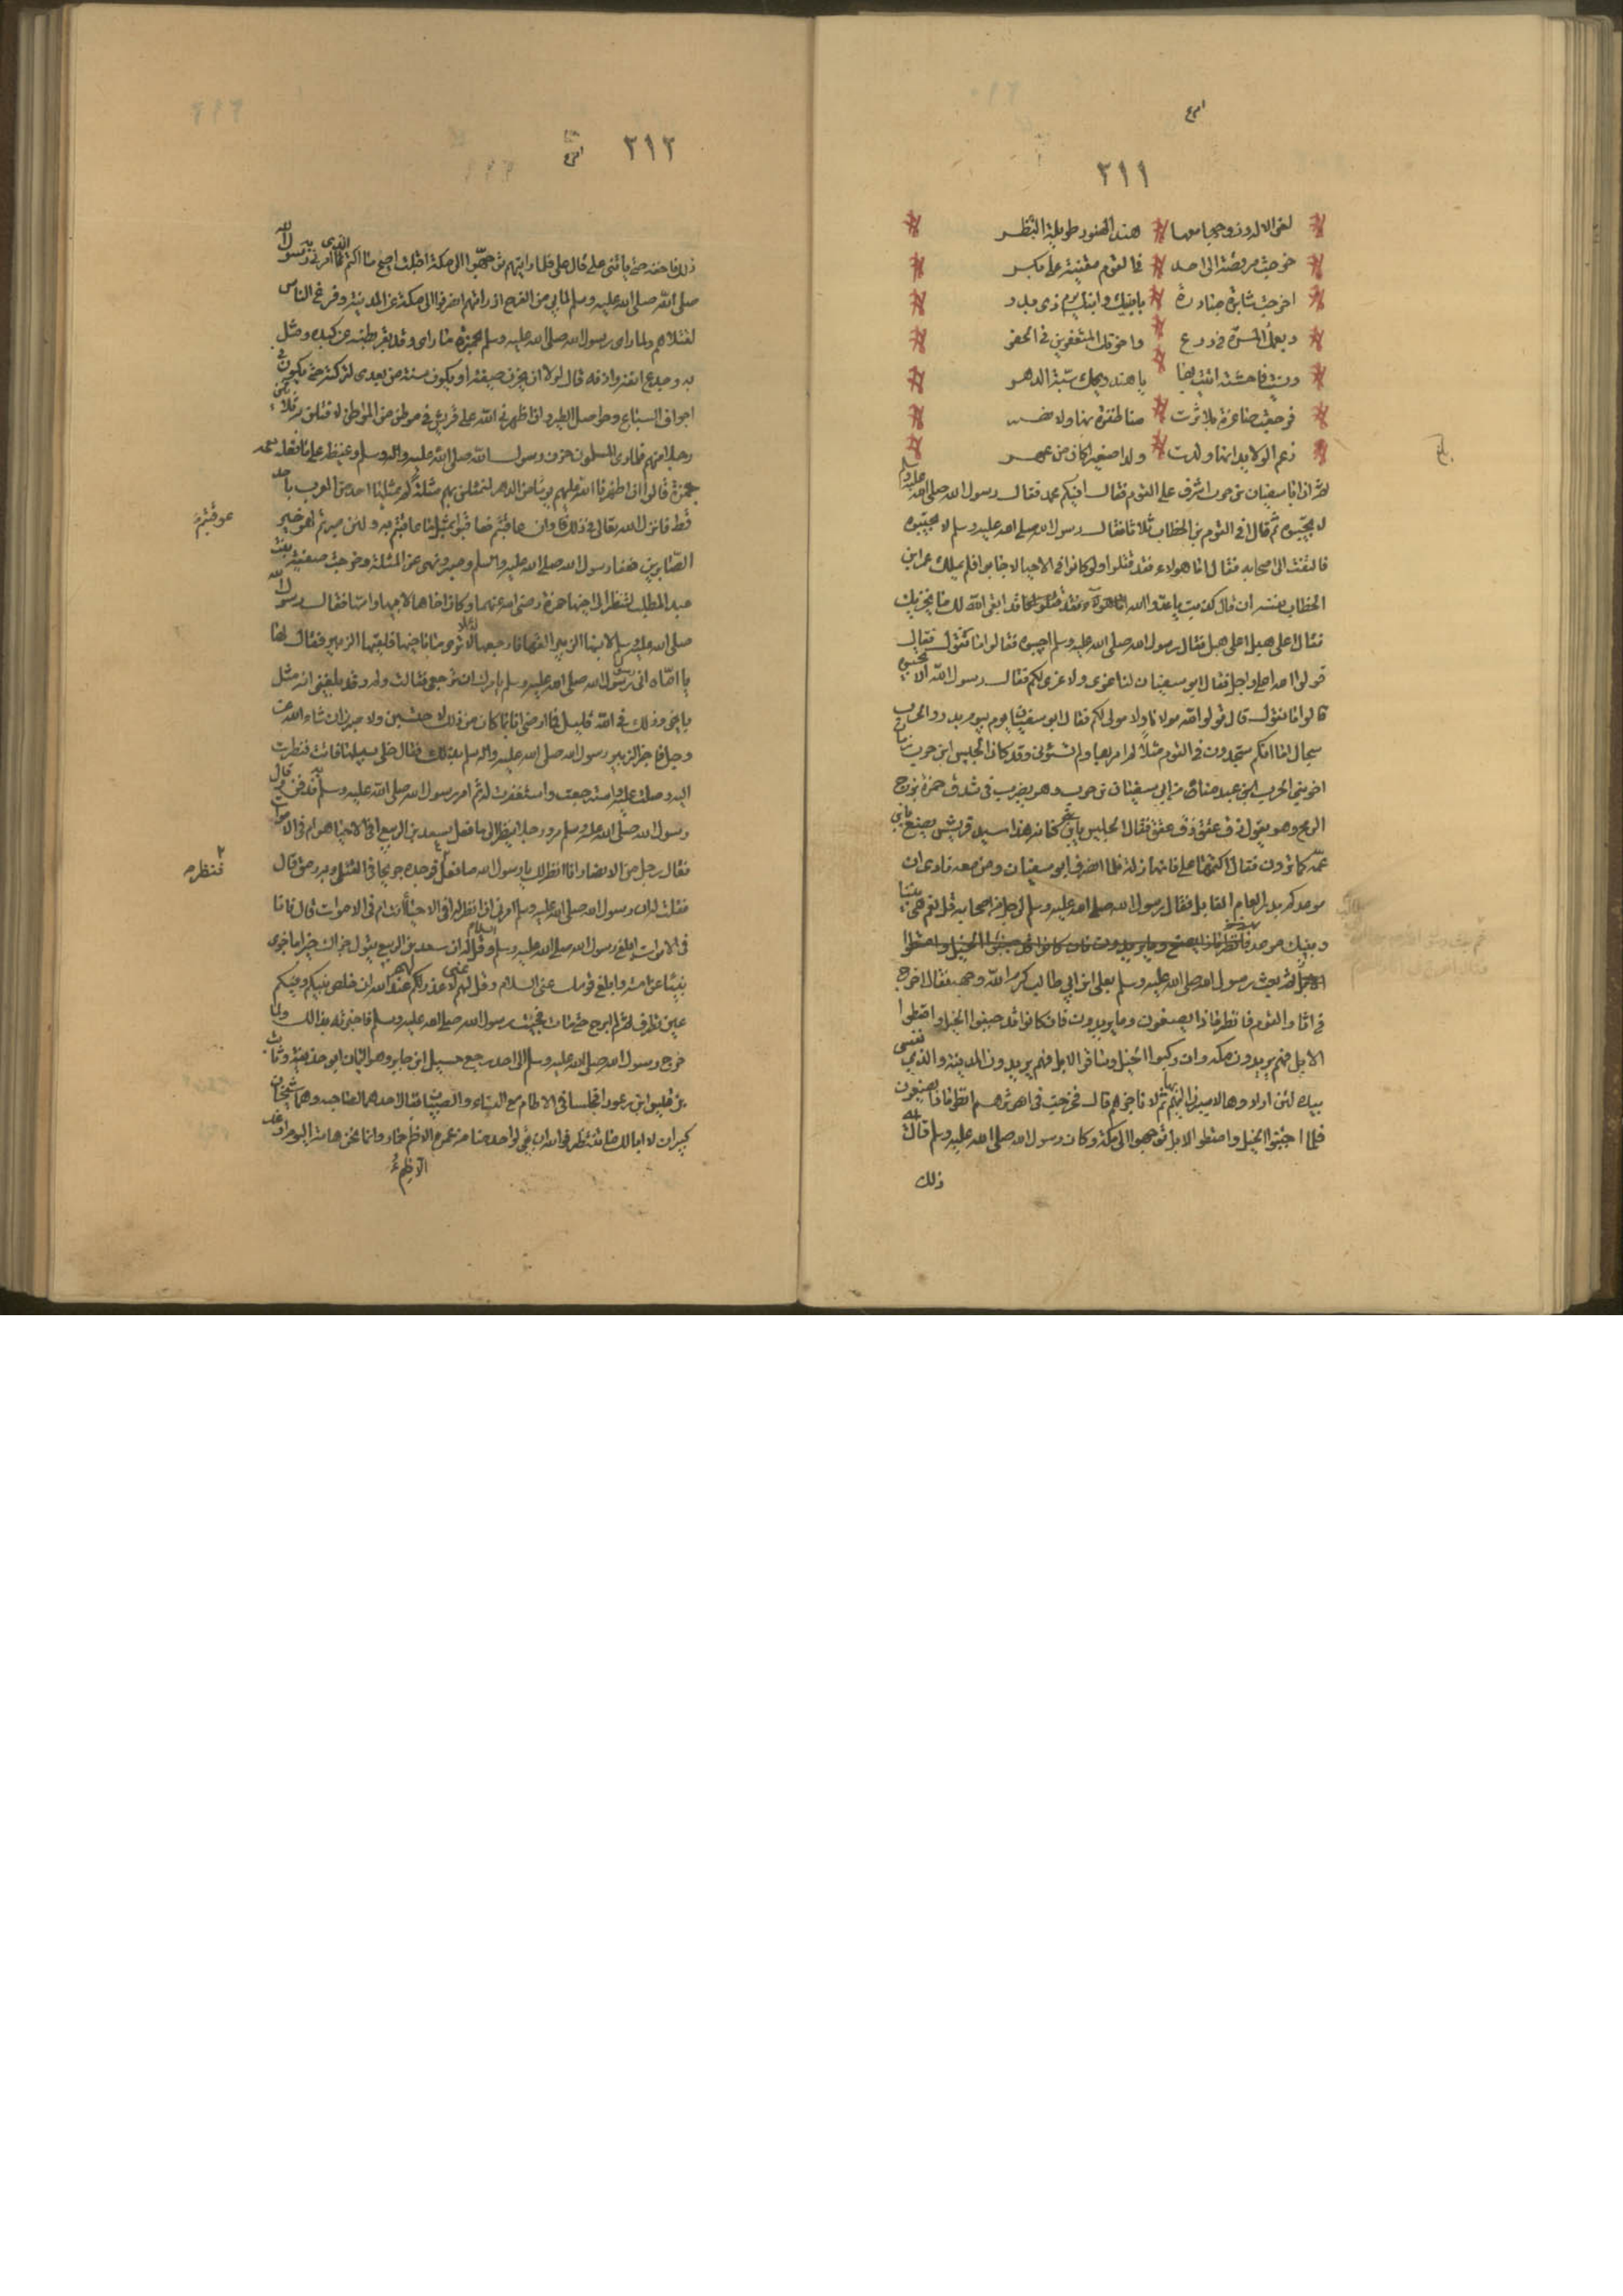 ٣١١
لعن الاله وزوجها معها هند الهنود طويلة البظر
خرجت مرقصة الى احد في القوم مقتبة على بكر
اخرجت ثائرة مبادرة بابيك وابنك يوم ذي بدر
وبعمك المستوه في ردع واخوتك المتعفرين في الجفر
ونسيت فاحشة اتيت بها يا هند ويحك سبة الدهر
فرجعت صاغرة بلا ترت منا ظفرت بها ولا نصر
زعم الولايد انها ولدت ولدا صغيرا كان من عهر
ثم ان ابا سفيان بن حرب اشرف على القوم فقال افيكم محمد فقال رسول الله صلى الله عليه وسلم
لا تجيبوه ثم قال افي القوم بن الخطاب ثلاثا فقال رسول الله صلى الله عليه وسلم لا تجيبوه
فالتفت الى اصحابه فقال اما هولاء فقد قتلوا ولو كانوا في الاحيا لاجابوا فلم يملك عمر ابن
الخطاب نفسه ان قال كذبت يا عدو الله قد ابقى الله لك ما يخزيك
فقال اعلى هبل اعلى هبل فقال رسول الله صلى الله عليه وسلم اجيبوه فقالوا ما نقول فقال
قولوا الله اعلى واجل فقال ابو سفيان لنا عزى ولا عزى لكم فقال رسول الله الا تجيبوه
قالوا ما نقول قال قولوا الله مولانا ولا مولى لكم فقال ابو سفيان يوم بيوم بدر والحرب
سجال اما انكم ستجدون في القوم مثلا لم امر بها ولم تسؤني وقد كان الحليس ابن حرب زبان
اخو بني الحرب ابن عبد مناة مر بابي سفيان بن حرب وهو يضرب في شدق حمزة بزج
الرمح وهو يقول ذق عقق ذق عقق فقال الحليس يا بني هذا سيد قريش يصنع بابن
عمه كما ترون فقال اكتمها علي فانها زلة فلما انصرف ابو سفيان ومن معه نادى ان
موعدكم بدر العام القابل فقال رسول الله صلى الله عليه وسلم لرجل من اصحابه قل نعم هي بيننا
وبينك موعد
ثم بعث رسول الله صلى الله عليه وسلم بعلي ابن ابي طالب كرم الله وجهه فقال اخرج
في اثار القوم فانظر ماذا يصنعون وما يريدون فان كانوا قد جنبوا الخيل وامتطوا
الابل فهم يريدون مكة وان ركبوا الخيل وساقوا الابل فهم يريدون المدينة والذي نفسي
بيده لئن ارادوها لاسيرن اليهم ثم لاناجزهم قال فخرجت في اثرهم انظر ماذا يصنعون
فلما اجنبوا الخيل وامتطوا الابل توجهوا الى مكة وكان رسول الله صلى الله عليه وسلم قال له
ذلك
٣١٢
ذلك فاخفه حتى ياتني علي قال علي فلما رايتهم توجهوا الى مكة اقبلت اصيح ما اكتم الذي امرني به رسول الله
صلى الله صلى الله عليه وسلم لما بي من الفرح اذ رايتهم انصرفوا الى مكة عن المدينة وفرغ الناس
لقتلاهم ولما راى رسول الله صلى الله عليه وسلم لحمزة ما راى وقد بقر بطنه عن كبده ومثل
به وجدع انفه واذنه قال لولا ان يحزن صفية او يكون سنة من بعدي لتركته حتى يكون في
اجواف السباع وحواصل الطير ولئن اظهرني الله على قريش في موطن من المواطن لامثلن بثلاثين
رجلا منهم فلما راى المسلمون حزن رسول الله صلى الله عليه واله وسلم وغيظه على ما فعل بعمه
حمزة قالوا لئن اظهرنا الله عليهم يوما من الدهر لنمثلن بهم مثلة لم يمثلها احد من العرب باحد
قط فانزل الله تعالى في ذلك وان عاقبتم فعاقبوا بمثل ما عاقبتم به ولئن صبرتم لهو خير
عوقبتم
الصابرين فعفا رسول الله صلى الله عليه واله وسلم وصبر ونهى عن المثلة وخرجت صفية بنت
عبد المطلب لتنظر الى اخيها حمزة رضي الله عنهما وكان اخاها لابيها وامها فقال رسول الله
صلى الله عليه وسلم لابنها الزبير القها فارجعها لئلا ترى ما باخيها فلقيها الزبير فقال لها
يا اماه ان رسول الله صلى الله عليه وسلم يامرك ان ترجعي فقالت ولم وقد بلغني انه مثل
باخي وذلك في الله قليل فما ارضانا بما كان من ذلك لاحتسبن ولاصبرن ان شاء الله عز
وجل فاخبر الزبير رسول الله صلى الله عليه واله وسلم بذلك فقال خل سبيلها فاتت فنظرت
اليه وصلت عليه واسترجعت واستغفرت له ثم امر رسول الله صلى الله عليه وسلم به فدفن ثم قال
رسول الله صلى الله عليه وسلم من رجل ينظر الى ما فعل سعد بن الربيع افي الاحيا هو ام في الاموات
فقال رجل من الانصار انا انظر لك يا رسول الله ما فعل فوجده جريحا في القتلى وبه رمق قال
فنظره
فقلت له ان رسول الله صلى الله عليه وسلم امرني ان انظر له افي الاحيا انت ام في الاموات قال فانا
في الاموات ابلغ رسول الله صلى الله عليه وسلم السلام وقل له ان سعد بن الربيع يقول جزاك خيرا ما جزى
نبيا عن امته وابلغ قومك عني السلام وقل لهم عني لا عذر لكم عند الله ان خلص الى نبيكم وفيكم
عين تطرف ثم لم ابرح حتى مات فجئت رسول الله صلى الله عليه وسلم فاخبرته بذالك ولما
خرج رسول الله صلى الله عليه وسلم الى احد رجع حسيل ابن جابر وهو اليمان ابو حذيفة وثابت
بن قيس ابن زعورا فجلسا في الاطام مع النساء والصبيان فقال احدهما لصاحبه وهما شيخان
كبيران لا ابا لك ما ننتظر فوالله ان بقي لواحد منا من عمره الا ظم حمار وانما نحن هامة اليوم او غد
الا ظم